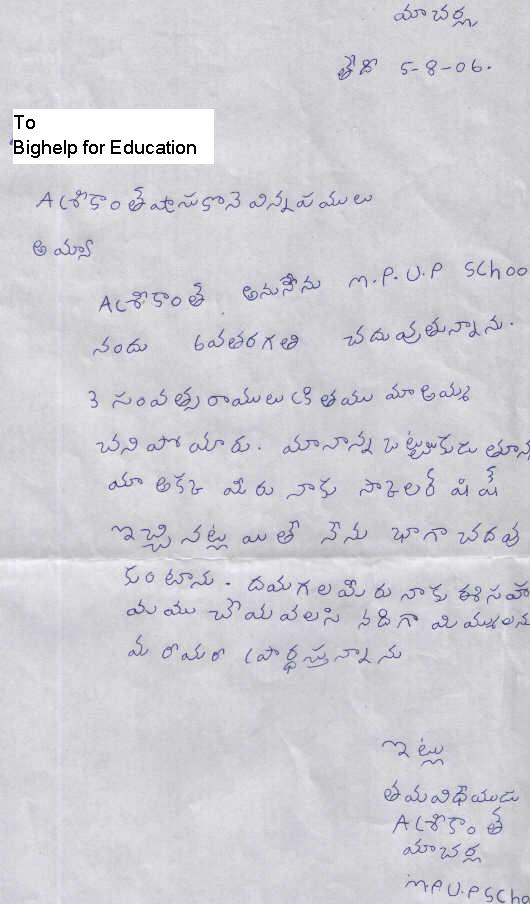 మాచర్ల
తేది 5-8-06.
To
Bighelp for Education
A శ్రీకాంత్ వ్రాసుకొనె విన్నపములు
అమ్మా
A శ్రీకాంత్ అనునేను M.P.U.P Schoo
నందు 6వతరగతి చదువుతున్నాను.
3 సంవత్సరాములు క్రితము మా అమ్మ
చనిపోయారు. మానాన్న
మా అక్క మీరు నాకు స్కాలర్ షిప్
ఇచ్చినట్లుయితే నేను భాగా చదవు
కుంటాను. దయగలమీరు నాకు ఈ సహా
యము చేయవలసినదిగా మిమ్ములను
ప్రార్ధస్తున్నాను
ఇట్లు
తమవిధేయుడు
A శ్రీకాంత్
మాచర్ల
M.P.U.P Scho